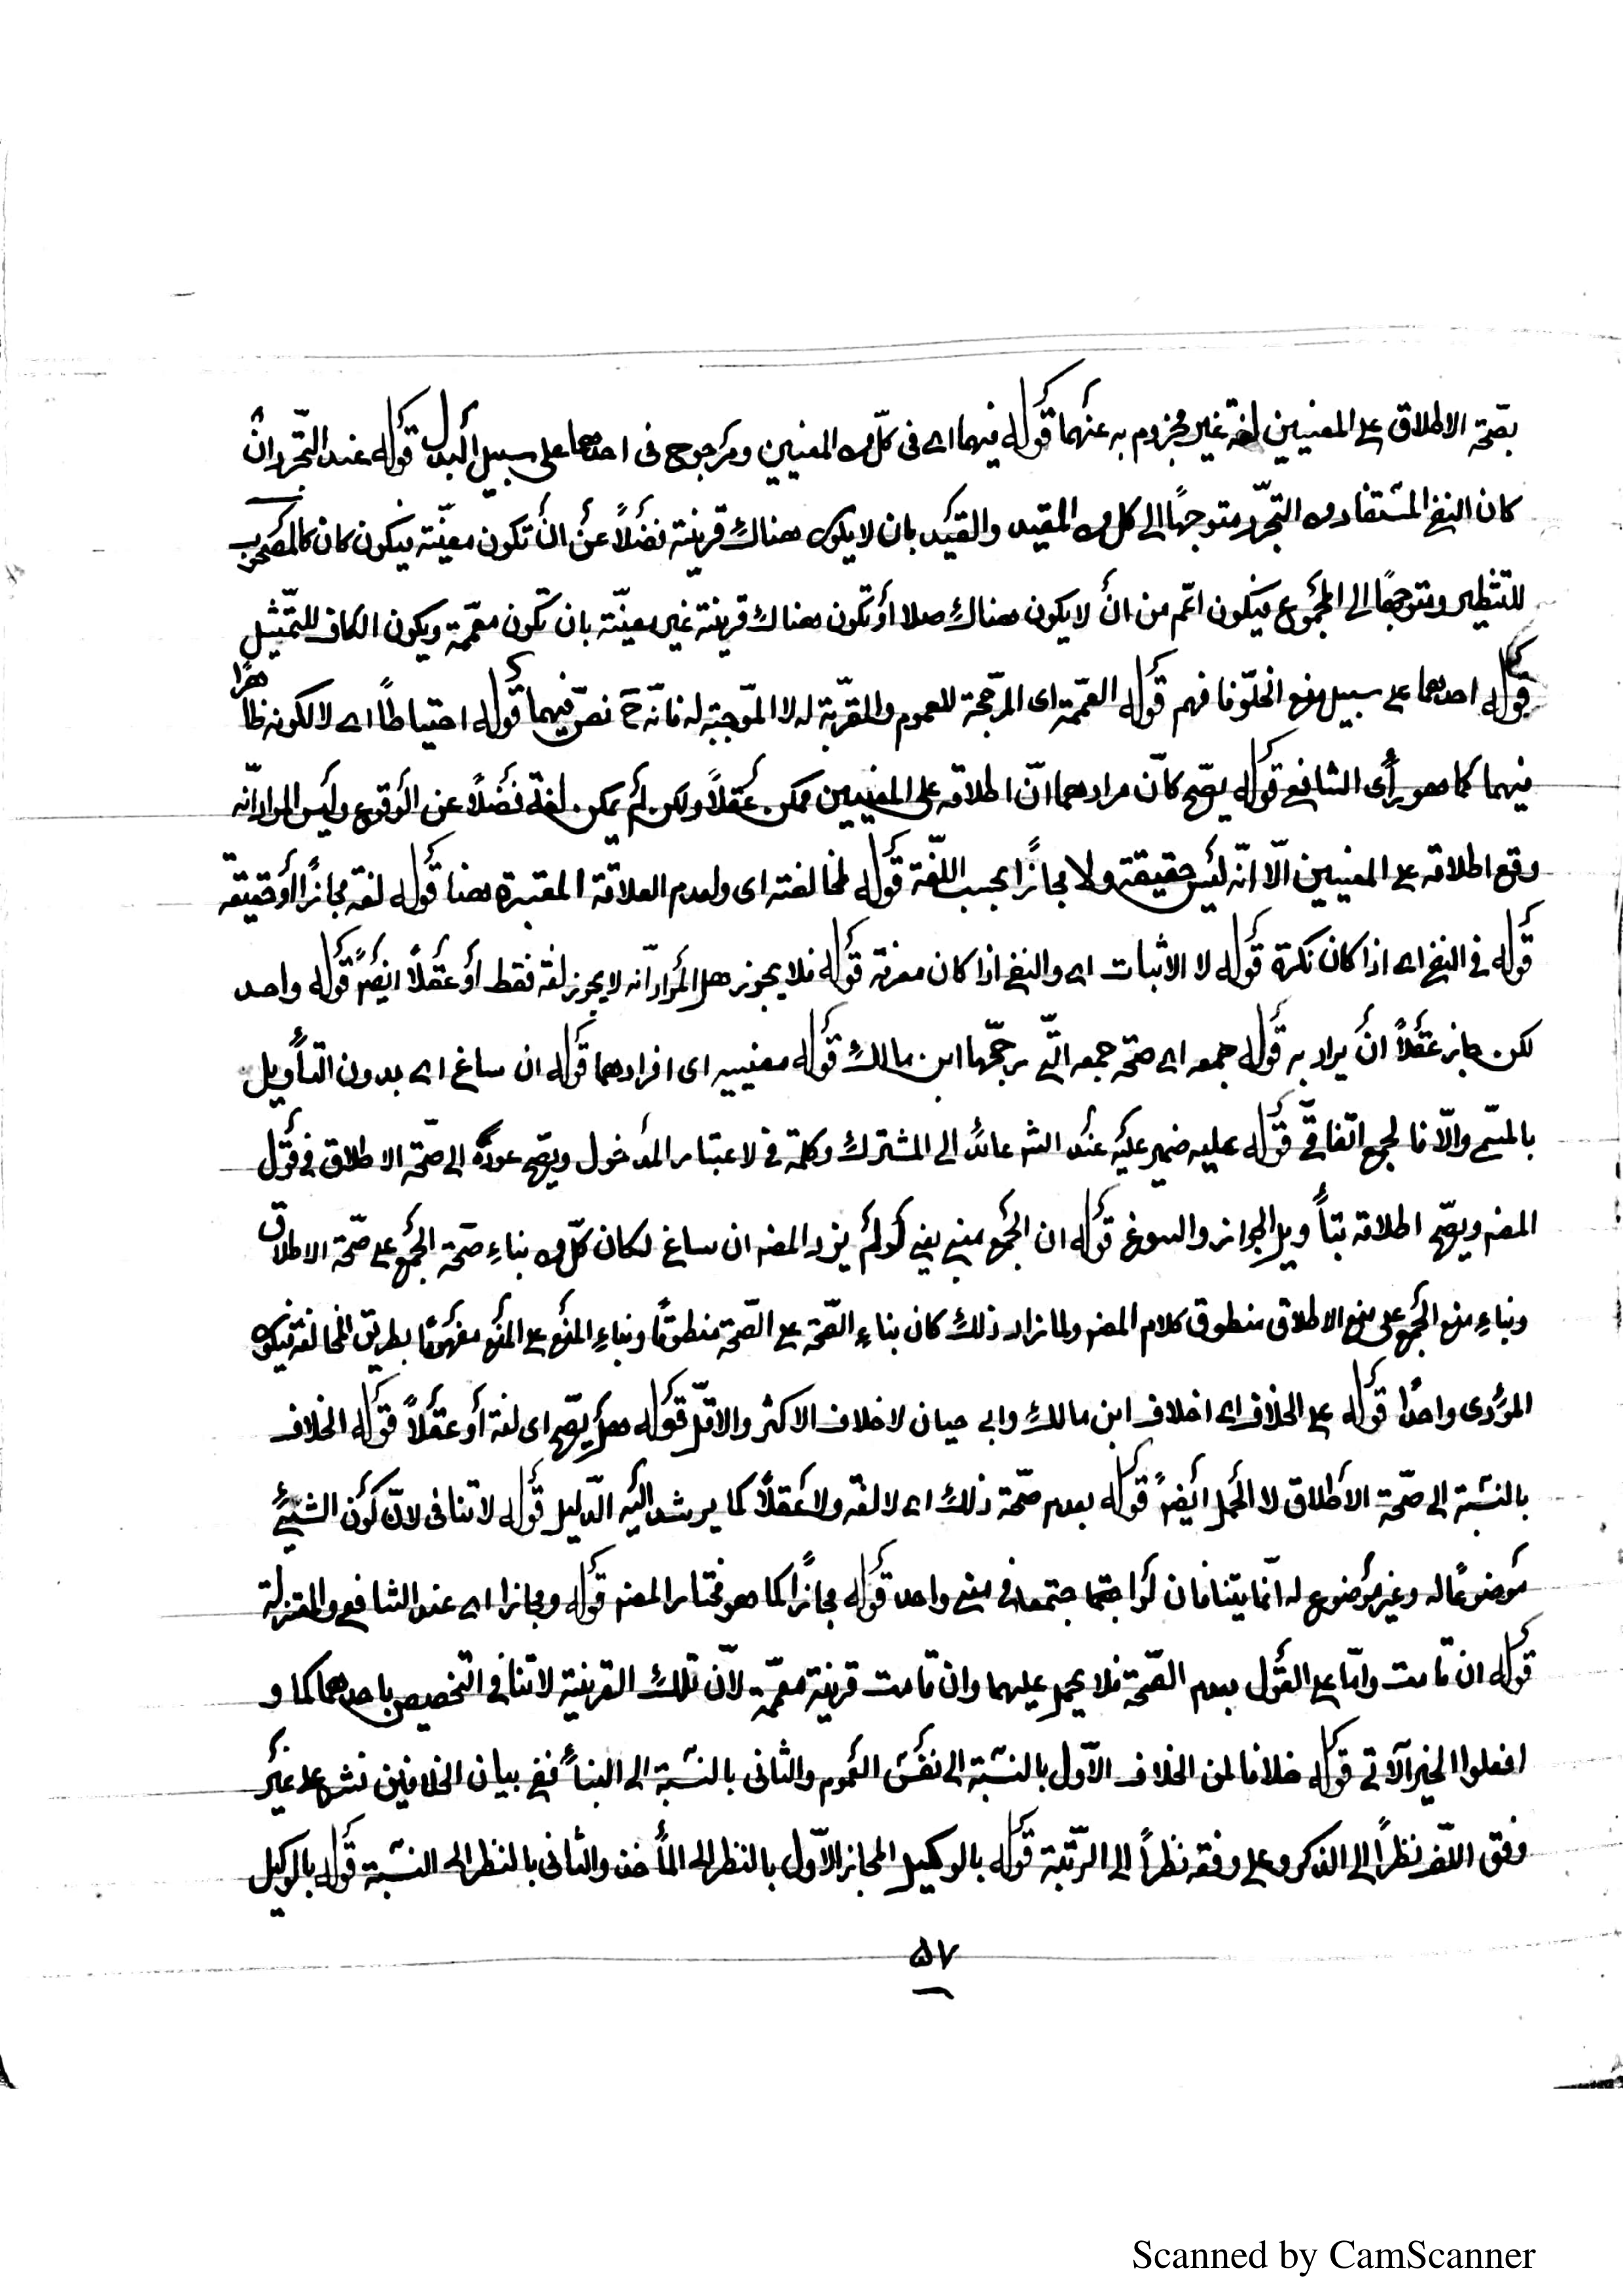 بصحّة الاطلاق على المعنيين لغة غير مجزوم به عنهما قوله فيهما اى فى كلّ من المعنيين ومرجوح فى احدهما على سبيل البدل قوله عند التجّرد ان
كان النفى المستفاد من التجّرد متوجهًا الى كل من المقيد والقيد بان لا يكون هناك قرينة فضلاً عن ان تكون معيّنة فيكون كان كالمصحوب
للتنظير ومتوجهًا الى المجموع فيكون اعّم من ان لا يكون هناك اصلا او تكون هناك قرينة غير معيّنة بان تكون معمّمة ويكون الكاف للتمثيل
قوله احدهما على سبيل منع الخلوّ فافهم قوله المعممة اى المرّجحة للعموم والمقرّبة له لا الموّجبة له فانّه ح نصّ فيهما قوله احتياطاً اى لا لكونه ظاهرًا
فيهما كما هو رأى الشافعى قوله يصّح كانّ مرادهما انّ اطلاقه على المعنيين ممكن عقلاً ولكن لم يمكن لغة فضلاً عن الوقوع وليس المراد انّه
وقع اطلاقه على المعنيين الّا انّه ليس حقيقة ولا مجازًا بحسب اللّغة قوله لمخالفته اى ولعدم العلاقة المعتبرة هنا قوله لغة مجازًا او حقيقة
قوله فى النفى اى اذا كان نكرة قوله لا الاثبات اى والنفى اذا كان معرفة قوله فلا يجوز هل المراد انّه لا يجوز لغة فقط او عقلًا ايضًا قوله واحد
لكن جاز عقلاً ان يراد به قوله جمعه اى صحّة جمعه الّتى رجّحها ابن مالك قوله معنييه اى افرادهما قوله ان ساغ اى بدون التأويل
بالمسّمى والّا فالجمع اتفاقىّ قوله عليه ضمير عليه عند الشـ عائد الى المشترك وكلمة فى لاعتبار المدخول ويصّح عوده الى صحّة الاطلاق فى قول
المصـ ويصّح اطلاقه بتأويل الجواز والسوغ قوله ان الجمع مبنى يعنى لو لم يزد المصـ ان ساغ لكان كلّ من بناءِ صحّة الجمع على صحّة الاطلاق
وبناءِ منع الجمع على منع الاطلاق منطوق كلام المصـ ولما زاد ذلك كان بناءِ الصّحة على الصّحة منطوقًا وبناءِ المنع على المنع مفهومًا بطريق المخالفة فيكون
المؤدى واحدًا قوله على الخلاف اى اخلاف ابن مالك وابى حيان لا خلاف الاكثر والاقلّ قوله هل يصّح اى لغة او عقلاً قوله الخلاف
بالنسبة الى صحّة الاطلاق لا الحمل ايضًا قوله بعدم صحّة ذلك اى لا لغة ولا عقلاً كما يرشد اليه الدّليل قوله لا تنافى لانّ كون الشىء
موضوعًا له وغير موضوع له انّما يتنافان لو اجتما جتمعا فى معنى واحد قوله مجازًا كما هو مختار المصـ قوله ومجازا اى عند الشافعى والمعتزلة
قوله ان قامت وامّا على القول بعدم الصّحة فلا يحمل عليهما وان قامت قرينة معمّمة لانّ تلك القرينة لا تنافى التخصيص باحدهما كما و
افعلوا الخير الآتى قوله خلافا لمن الخلاف الاوّل بالنسّبة الى نفس العموم والثانى بالنسّبة الى البناً ففى بيان الخلافين نشر على غير
وفق اللّف نظرًا الى الذكر وعلى وفقه نظرًا الى الرّتبة قوله بالوكيل المجاز الاوّل بالنظر الى المأخذ والثانى بالنظر الى النسّبة قوله بالوكيل
۵۷
Scanned by CamScanner